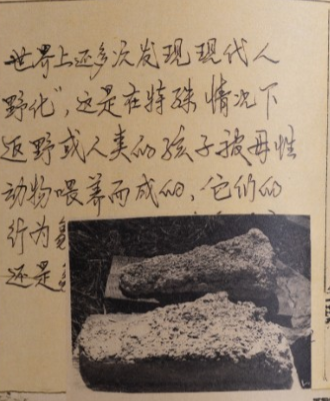 世界上还多次发现现代人
野化”,这是在特殊情况下
返野或人类的孩子被母性
动物喂养而成的,它们的
行为
还是